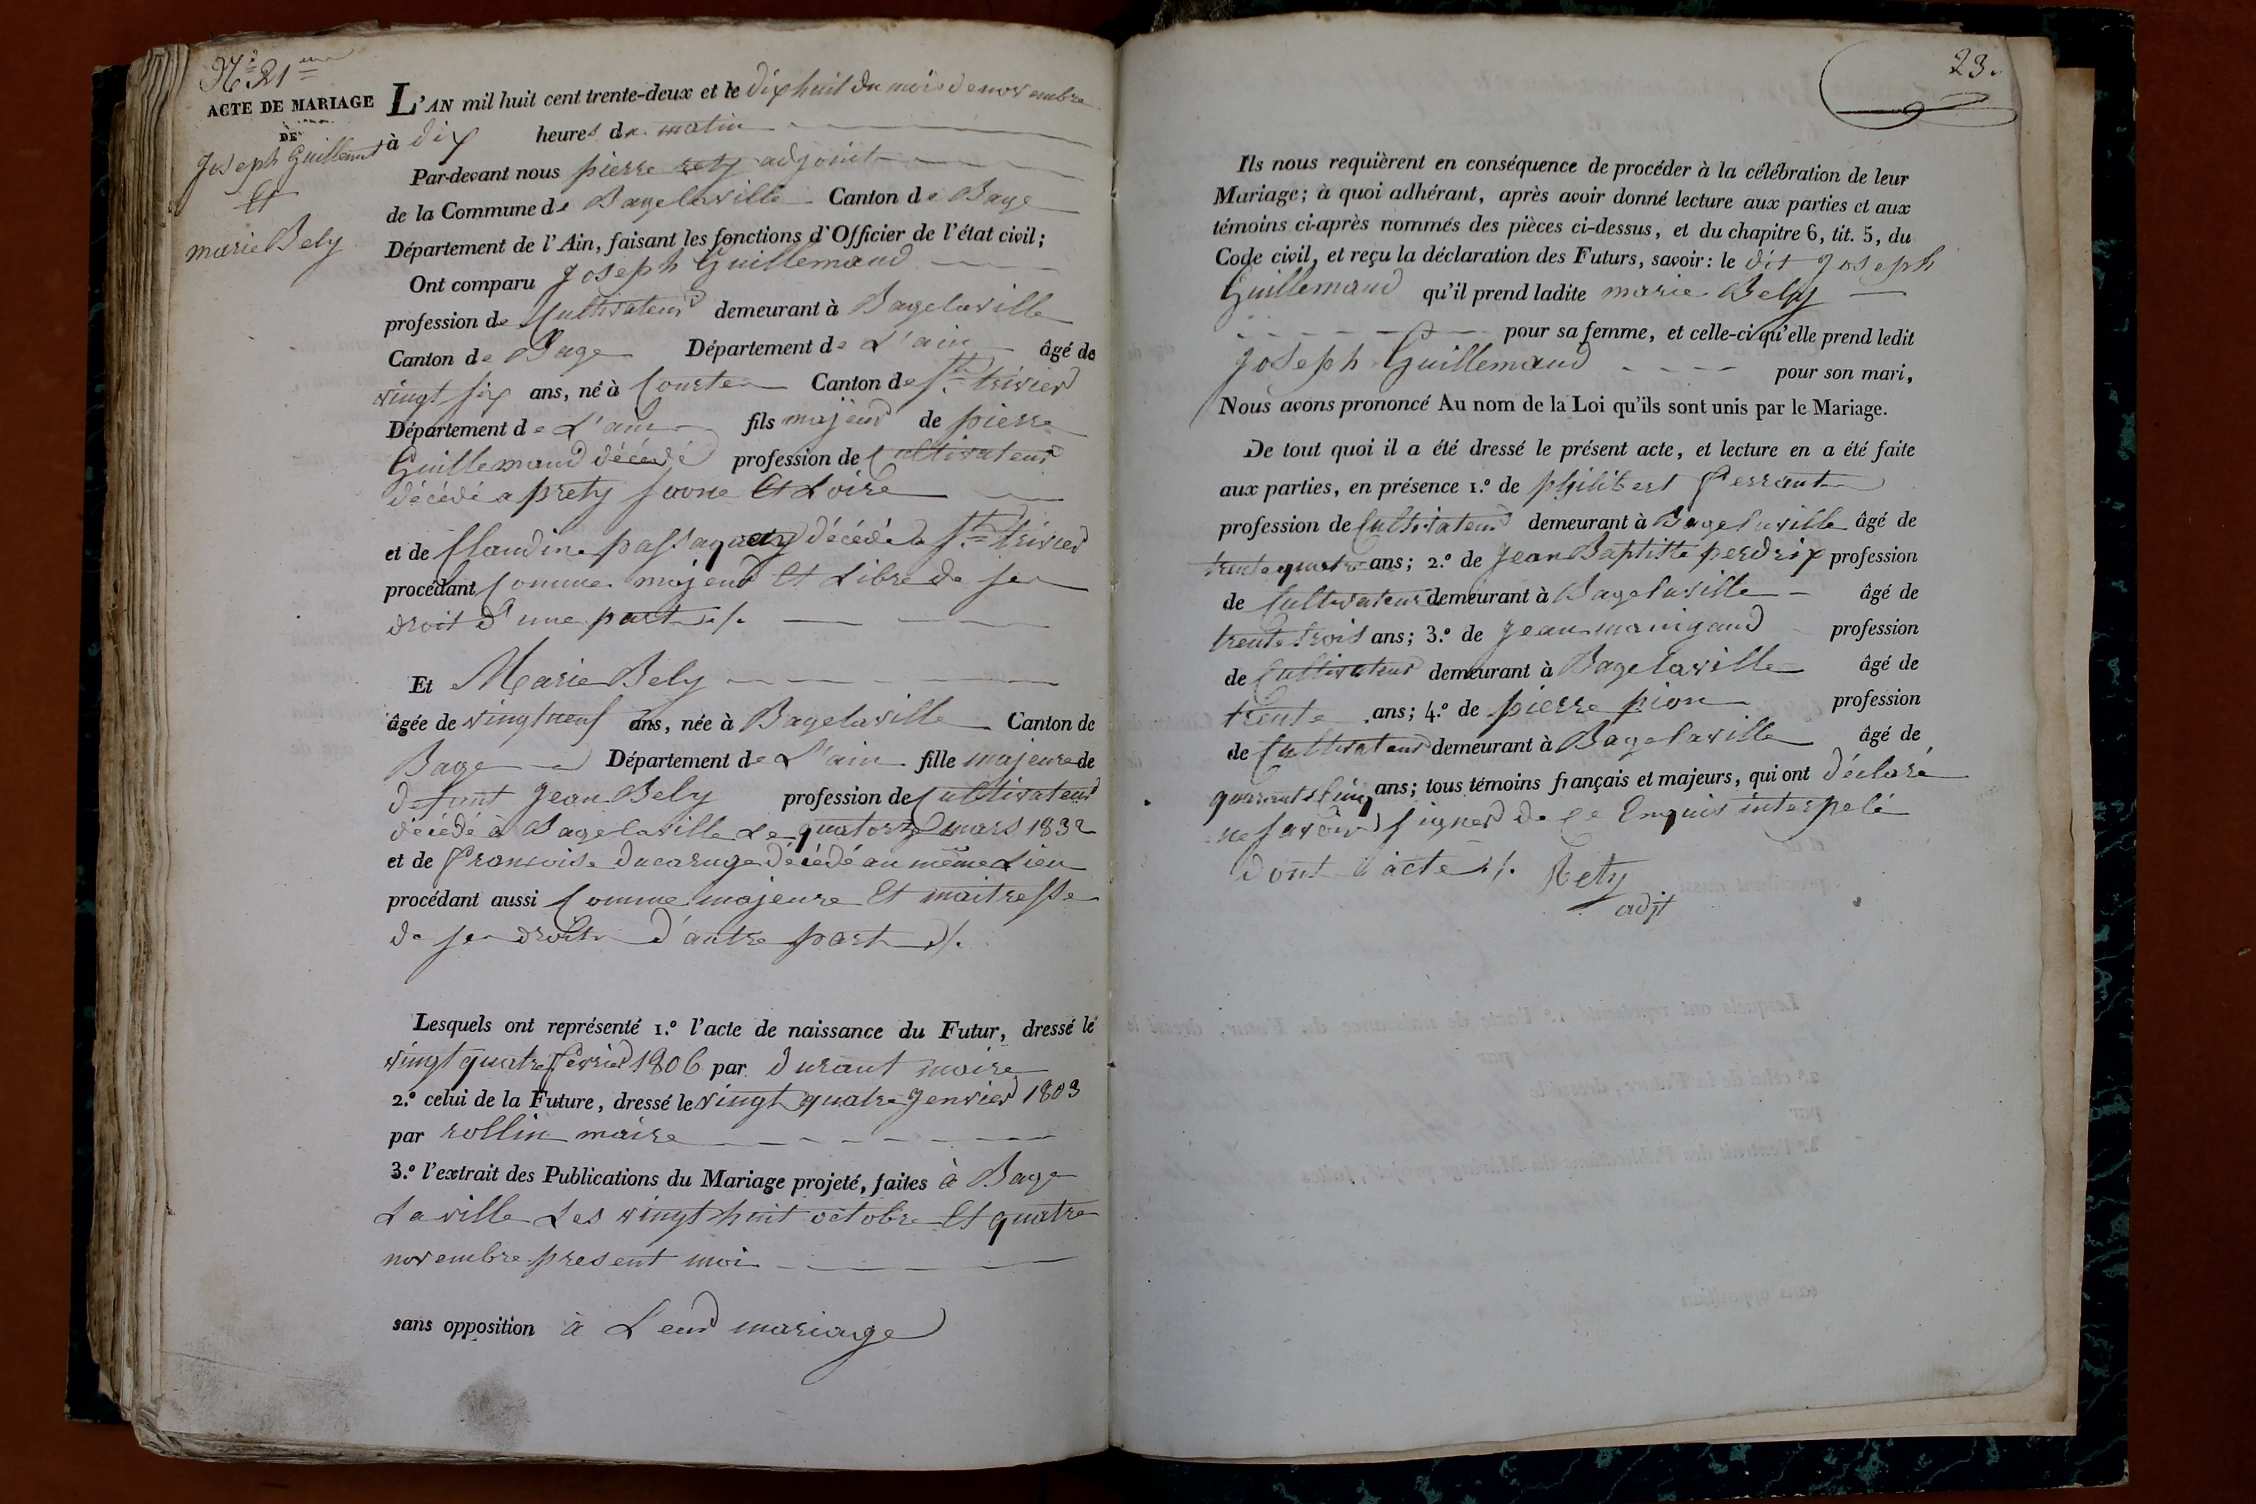 N.º 21 eme
ACTE DE MARIAGE
DE
Joseph Guillemaud
Et
marie Bely
L'AN mil huit cent trente-deux et le dixhuit du mois de novembre
à dix heures du matin
Par-devant nous pierre rety adjoint
de la Commune de Bagelaville Canton de Bage
Département de l'Ain, faisant les fonctions d'Officier de l'état civil;
Ont comparu Joseph Guillemaud
profession de Cultivateur demeurant à Bagelaville
Canton de Bage Département de L'ain âgé de
vingt six ans, né à Courtes Canton de St. trivier
Département de L'ain fils majeur de pierre
Guillemaud décédé profession de Cultivateur
décédé a prety saone Et Loire
et de Claudine passaquay décédé a St. trivier
procédant Comme majeur Et Libre de ses
droit d'une part ./.
Et Marie Bely
âgée de vingt neuf ans, née à Bagelaville Canton de
Bage Département de L'ain fille majeure de
defunt Jean Bely profession de Cultivateur
décédé à Bagelaville Le quatorze mars 1832
et de francoise Ducaruge décédé au même Lieu
procédant aussi Comme majeure Et maitresse
de ses droits d'autre part ./.
Lesquels ont représenté 1.º l'acte de naissance du Futur, dressé le
vingt quatre fevrier 1806 par durant maire
2.º celui de la Future, dressé le vingt quatre Jenvier 1803
par rollin maire
3.º l'extrait des Publications du Mariage projeté, faites à Bage
Laville Les vingt huit octobre Et quatre
novembre present moi
sans opposition à Leur mariage
23.
Ils nous requièrent en conséquence de procéder à la célébration de leur
Mariage; à quoi adhérant, après avoir donné lecture aux parties et aux
témoins ci-après nommés des pièces ci-dessus, et du chapitre 6, tit. 5, du
Code civil, et reçu la déclaration des Futurs, savoir: le dit Joseph
Guillemaud qu'il prend ladite marie Bely
pour sa femme, et celle-ci qu'elle prend ledit
Joseph Guillemaud pour son mari,
Nous avons prononcé Au nom de la Loi qu'ils sont unis par le Mariage.
De tout quoi il a été dressé le présent acte, et lecture en a été faite
aux parties, en présence 1.º de philibert ferrant
profession de Cultivateur demeurant à Bagelaville âgé de
trente quatre ans; 2.º de Jean Baptiste perdrix profession
de Cultivateur demeurant à Bagelaville âgé de
trente trois ans; 3.º de Jean maingaud profession
de Cultivateur demeurant à Bagelaville âgé de
trente ans; 4.º de pierre pion profession
de Cultivateur demeurant à Bagelaville âgé de
quarante Cinq ans; tous témoins français et majeurs, qui ont déclaré
ne savoir signer de Ce Enquis interpelé
dont d'acte ./. Rety
adjt